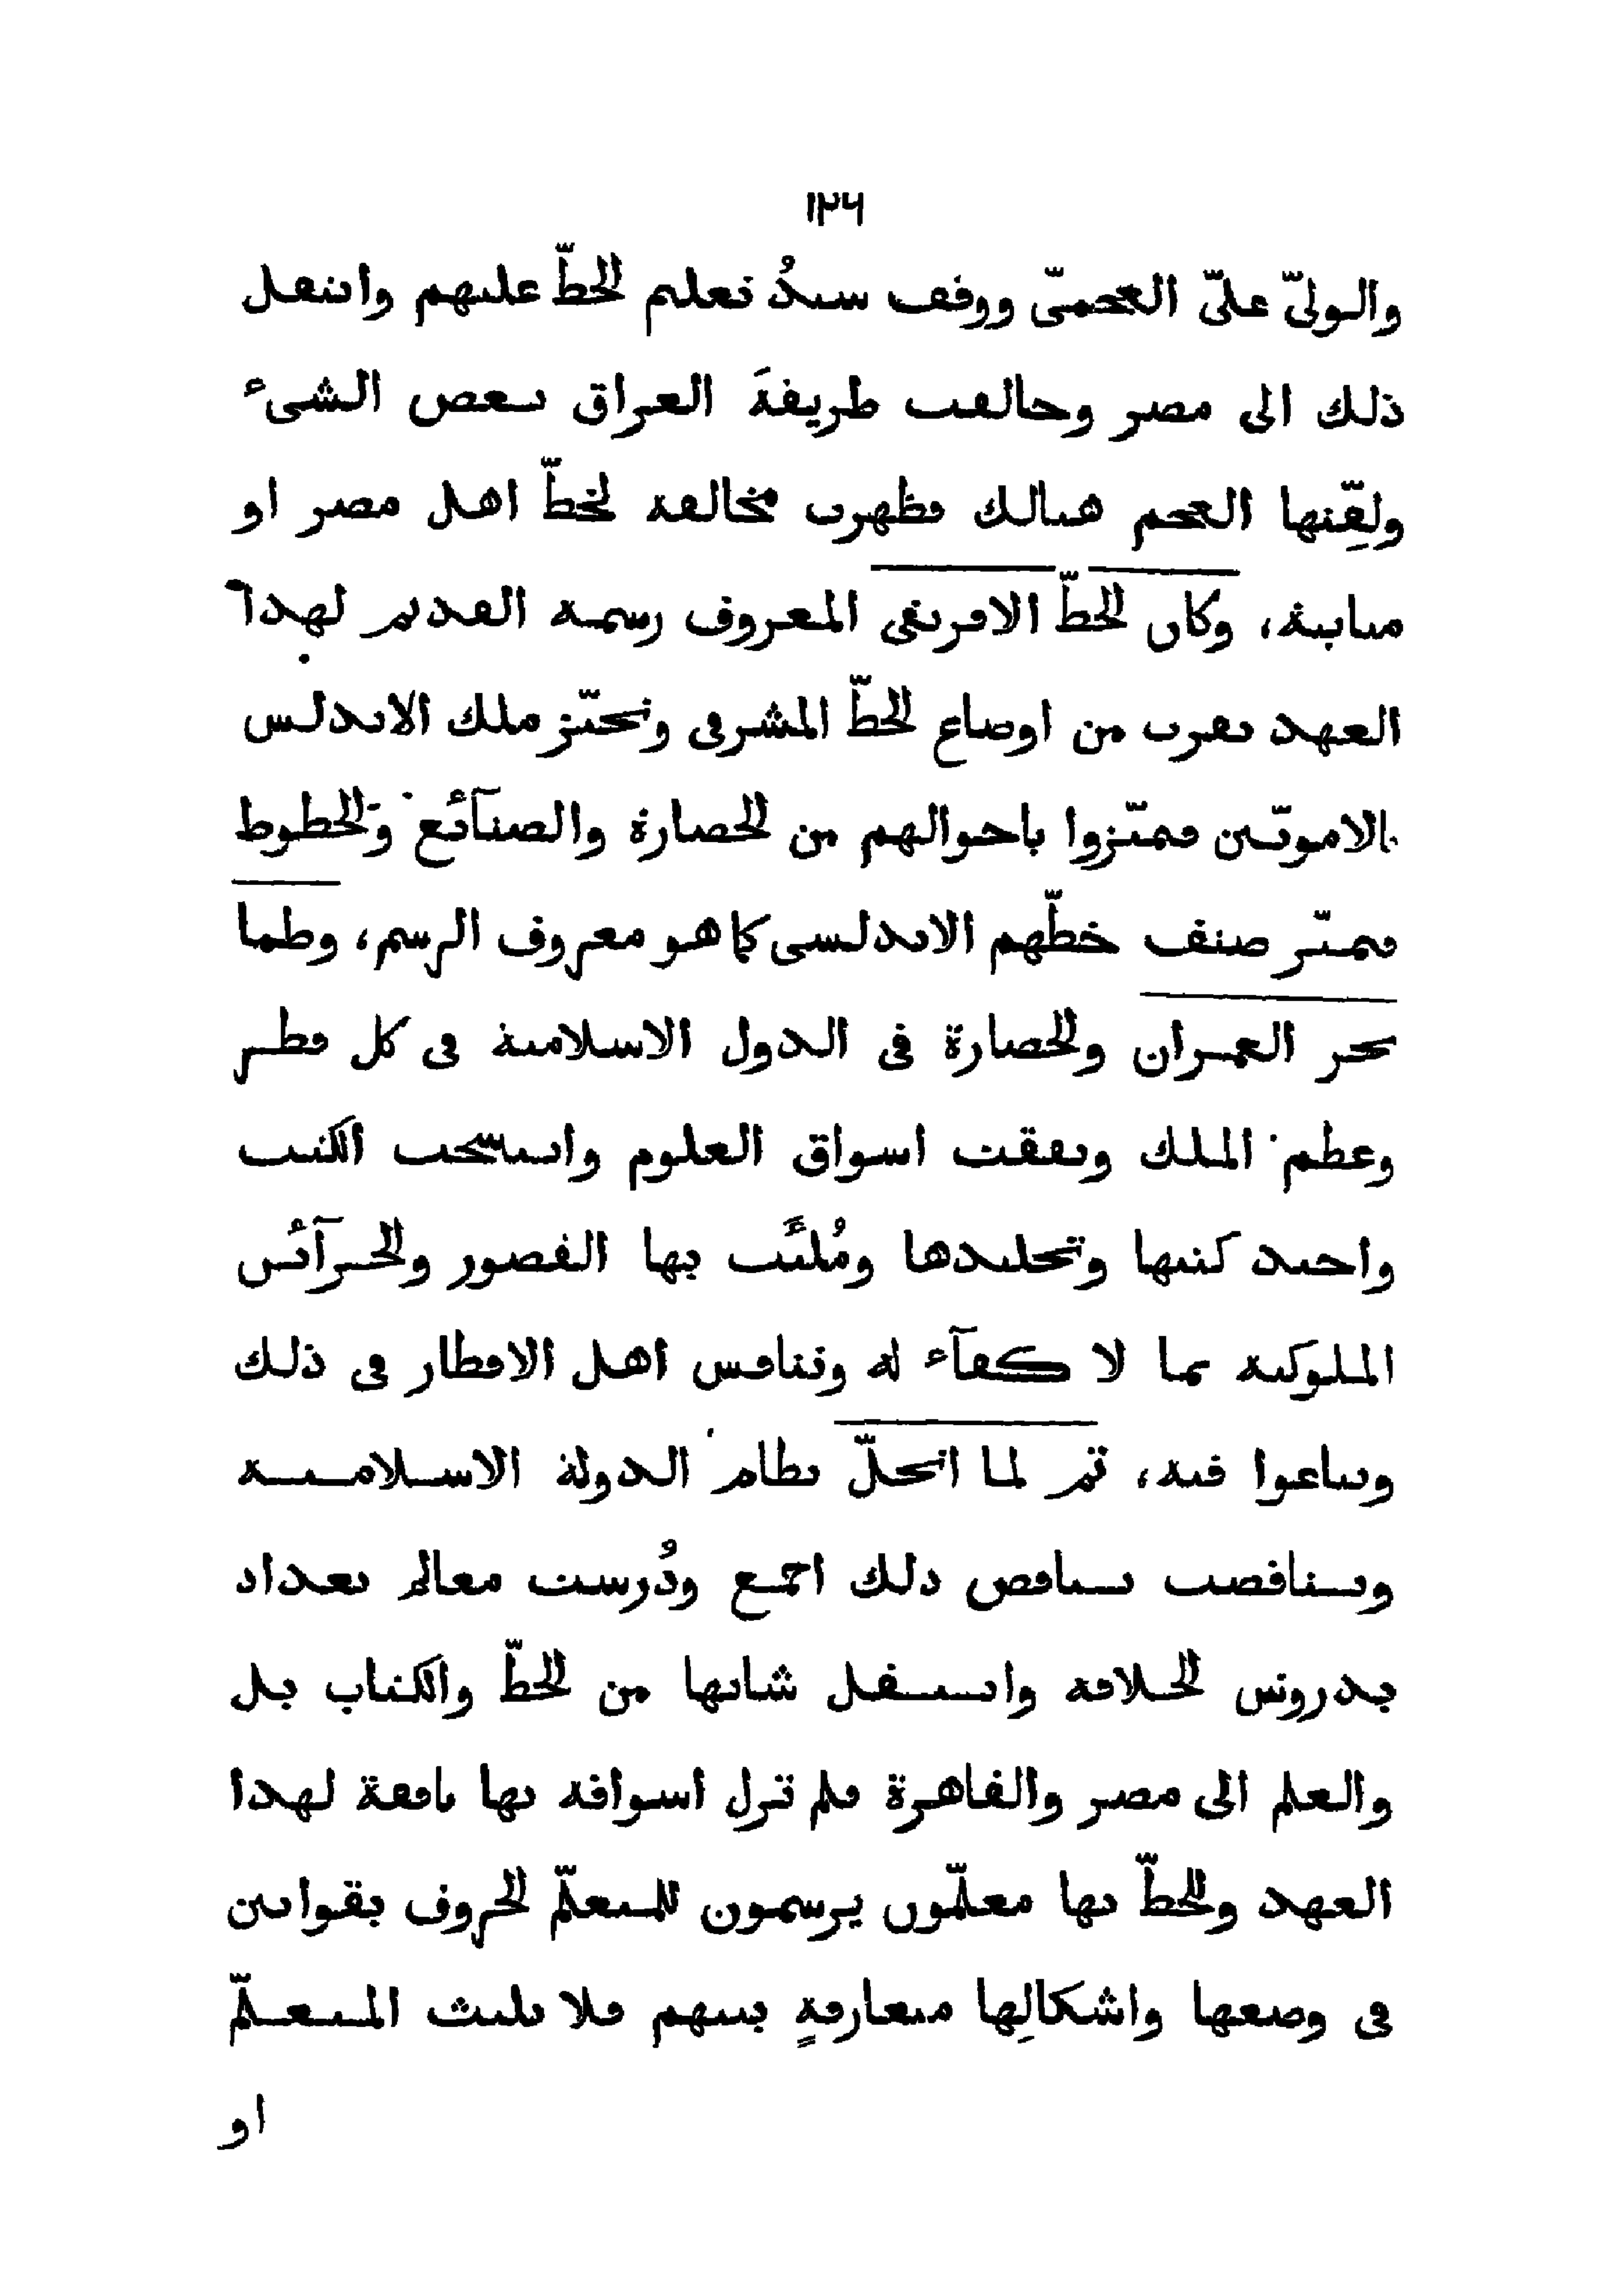 ١٢٦
والولىّ علىّ العجمىّ ووقف سندُ تعليم الخطّ عليهم وانتقل
ذلك الى مصر وخالفت طريقةَ العراق بعض الشىء
ولقِّنها العجم هنالك فظهرت مخالفة لخطّ اهل مصر او
مباينة، وكان الخطّ الافريقى المعروف رسمه القديم لهذا
العهد يقرب من اوضاع الخطّ المشرقى وتحيّز ملك الاندلس
بالامويّين فتميّزوا باحوالهم من الحضارة والصنآئع والخطوط
فتميّز صنف خطّهم الاندلسى كما هو معروف الرسم، وطما
بحر العمران والحضارة فى الدول الاسلامية فى كل قطر
وعظم الملك ونفقت اسواق العلوم وانتسخت الكتب
واجيد كتبها وتجليدها ومُلئَت بها القصور والخزآئن
الملوكية بما لا كفآء له وتنافس اهل الاقطار فى ذلك
وتناغوا فيه، ثم لما انحلّ نظام الدولة الاسلامية
وتناقصت تناقص ذلك اجمع ودُرست معالم بغداد
بدروس الخلافة وانتقل شانها من الخطّ والكتاب بل
والعلم الى مصر والقاهرة فلم تزل اسواقه بها نافقة لهذا
العهد وللخطّ بها معلّمون يرسمون للمتعلّم الحروف بقوانين
فى وضعها واشكالِها متعارفةٍ بينهم فلا يلبث المتعلّم
او